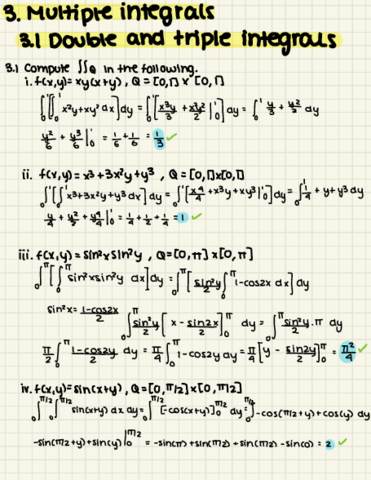 3. Multiple integrals
3.1 Double and triple integrals
3.1 Compute ∬Q in the following.
i. f(x,y)= xy(x+y), Q = [0,1] × [0,1]
∫₀¹[∫₀¹ x²y+xy² dx]dy = ∫₀¹[x³y/3 + x²y²/2 |₀¹] dy = ∫₀¹ y/3 + y²/2 dy
y²/6 + y³/6 |₀¹ = 1/6 + 1/6 = 1/3 ✓
ii. f(x,y) = x³+3x²y+y³, Q = [0,1]x[0,1]
∫₀¹[∫₀¹ x³+3x²y+y³ dx] dy = ∫₀¹[x⁴/4 + x³y + xy³ |₀¹] dy = ∫₀¹ 1/4 + y + y³ dy
y/4 + y²/2 + y⁴/4 |₀¹ = 1/4 + 1/2 + 1/4 = 1 ✓
iii. f(x,y) = sin²x sin²y, Q=[0,π] x [0,π]
∫₀^π[∫₀^π sin²x sin²y dx]dy = ∫₀^π[sin²y/2 ∫₀^π 1-cos2x dx] dy
sin²x = 1-cos2x/2 ∫₀^π sin²y/2 [x - sin2x/2]₀^π dy = ∫₀^π sin²y/2 . π dy
π/2 ∫₀^π 1-cos2y/2 dy = π/4 ∫₀^π 1-cos2y dy = π/4 [y - sin2y/2]₀^π = π²/4 ✓
iv. f(x,y)= sin(x+y), Q=[0,π/2]x[0,π/2]
∫₀^π/2 ∫₀^π/2 sin(x+y) dx dy = ∫₀^π/2 [-cos(x+y)]₀^π/2 dy = ∫₀^π/2 -cos(π/2+y)+cos(y) dy
-sin(π/2+y)+sin(y) |₀^π/2 = -sin(π)+sin(π/2)+sin(π/2)-sin(0) = 2 ✓